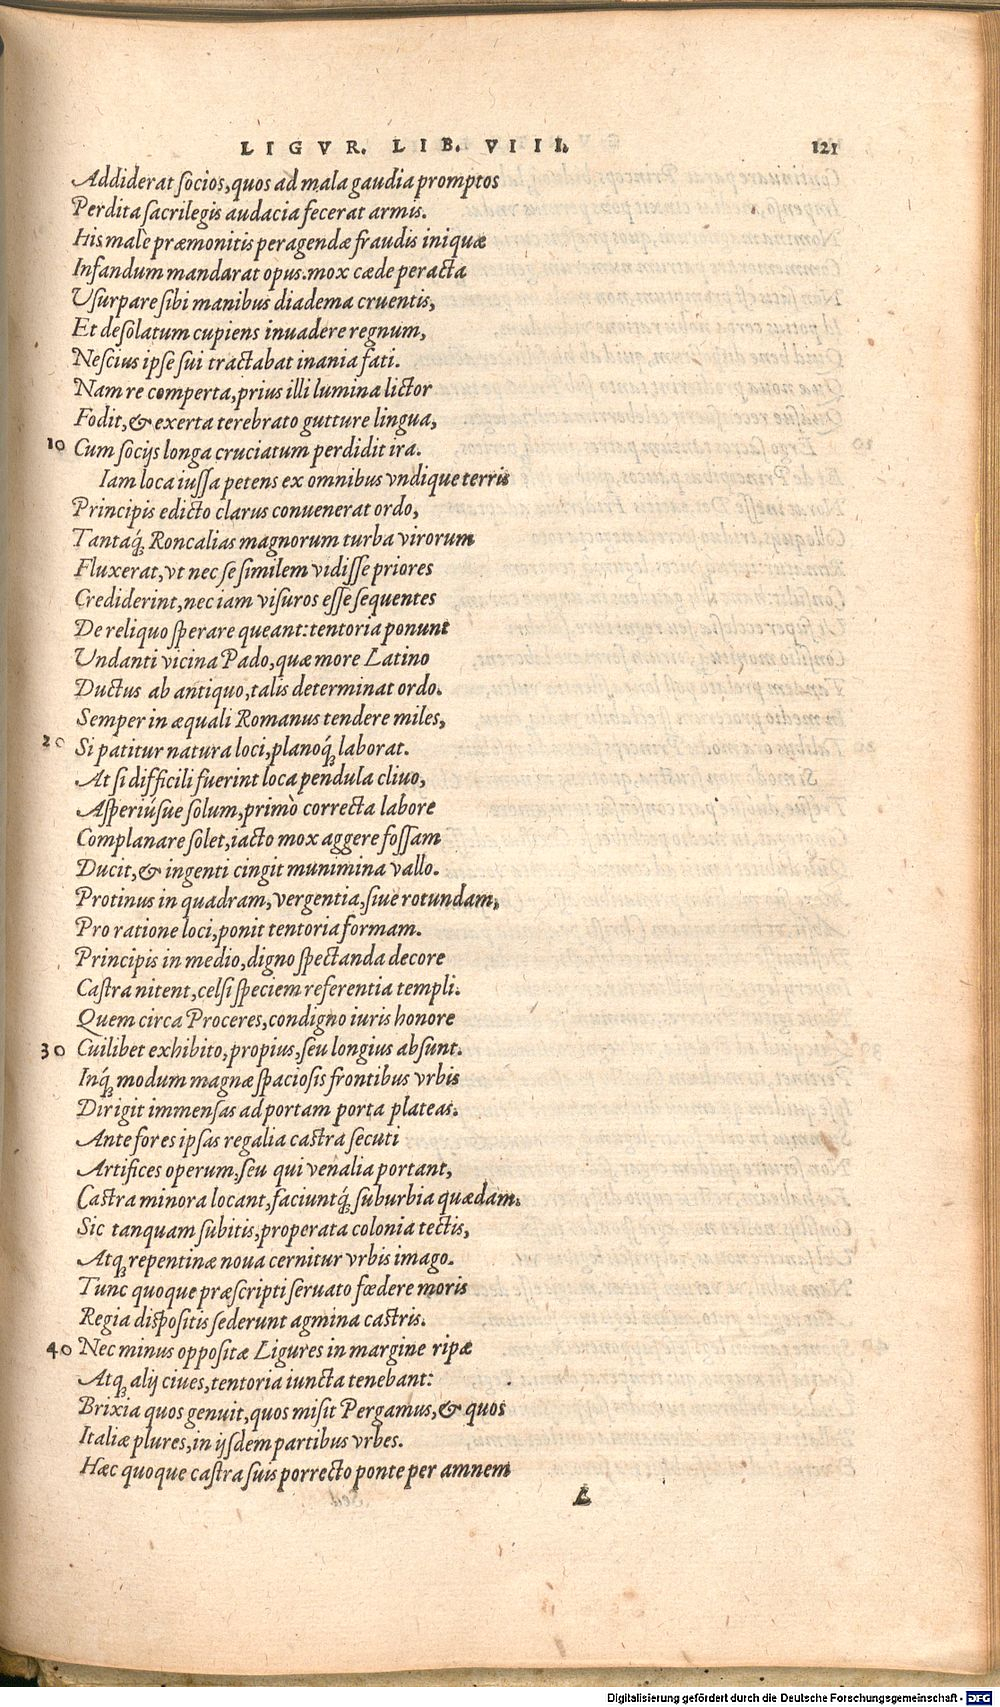 LIGVR. LIB. VIII. 121
Addiderat socios, quos ad mala gaudia promptos
Perdita sacrilegis audacia fecerat armis.
His malè præmonitis peragendæ fraudis iniquæ
Infandum mandarat opus. mox cæde peracta
Vsurpare sibi manibus diadema cruentis,
Et desolatum cupiens inuadere regnum,
Nescius ipse sui tractabat inania fati.
Nam re comperta, prius illi lumina lictor
Fodit, & exerta terebrato gutture lingua,
10 Cum socijs longa cruciatum perdidit ira.
Iam loca iussa petens ex omnibus vndique terris
Principis edicto clarus conuenerat ordo,
Tantaq́; Roncalias magnorum turba virorum
Fluxerat, vt nec se similem vidisse priores
Crediderint, nec iam visuros esse sequentes
De reliquo sperare queant: tentoria ponunt
Vndanti vicina Pado, quæ more Latino
Ductus ab antiquo, talis determinat ordo.
Semper in æquali Romanus tendere miles,
20 Si patitur natura loci, planoq́; laborat.
At si difficili fuerint loca pendula cliuo,
Asperiúsue solum, primò correcta labore
Complanare solet, iacto mox aggere fossam
Ducit, & ingenti cingit munimina vallo.
Protinus in quadram, vergentia, siue rotundam,
Pro ratione loci, ponit tentoria formam.
Principis in medio, digno spectanda decore
Castra nitent, celsi speciem referentia templi.
Quem circa Proceres, condigno iuris honore
30 Cuilibet exhibito, propius, seu longius absunt.
Inq́; modum magnæ spaciosis frontibus vrbis
Dirigit immensas ad portam porta plateas.
Ante fores ipsas regalia castra secuti
Artifices operum, seu qui venalia portant,
Castra minora locant, faciuntq́; suburbia quædam.
Sic tanquam subitis, properata colonia tectis,
Atq; repentinæ noua cernitur vrbis imago.
Tunc quoque præscripti seruato fœdere moris
Regia dispositis sederunt agmina castris.
40 Nec minus oppositæ Ligures in margine ripæ
Atq; alij ciues, tentoria iuncta tenebant:
Brixia quos genuit, quos misit Pergamus, & quos
Italiæ plures, in ijsdem partibus vrbes.
Hæc quoque castra suis porrecto ponte per amnem
L
Digitalisierung gefördert durch die Deutsche Forschungsgemeinschaft - DFG